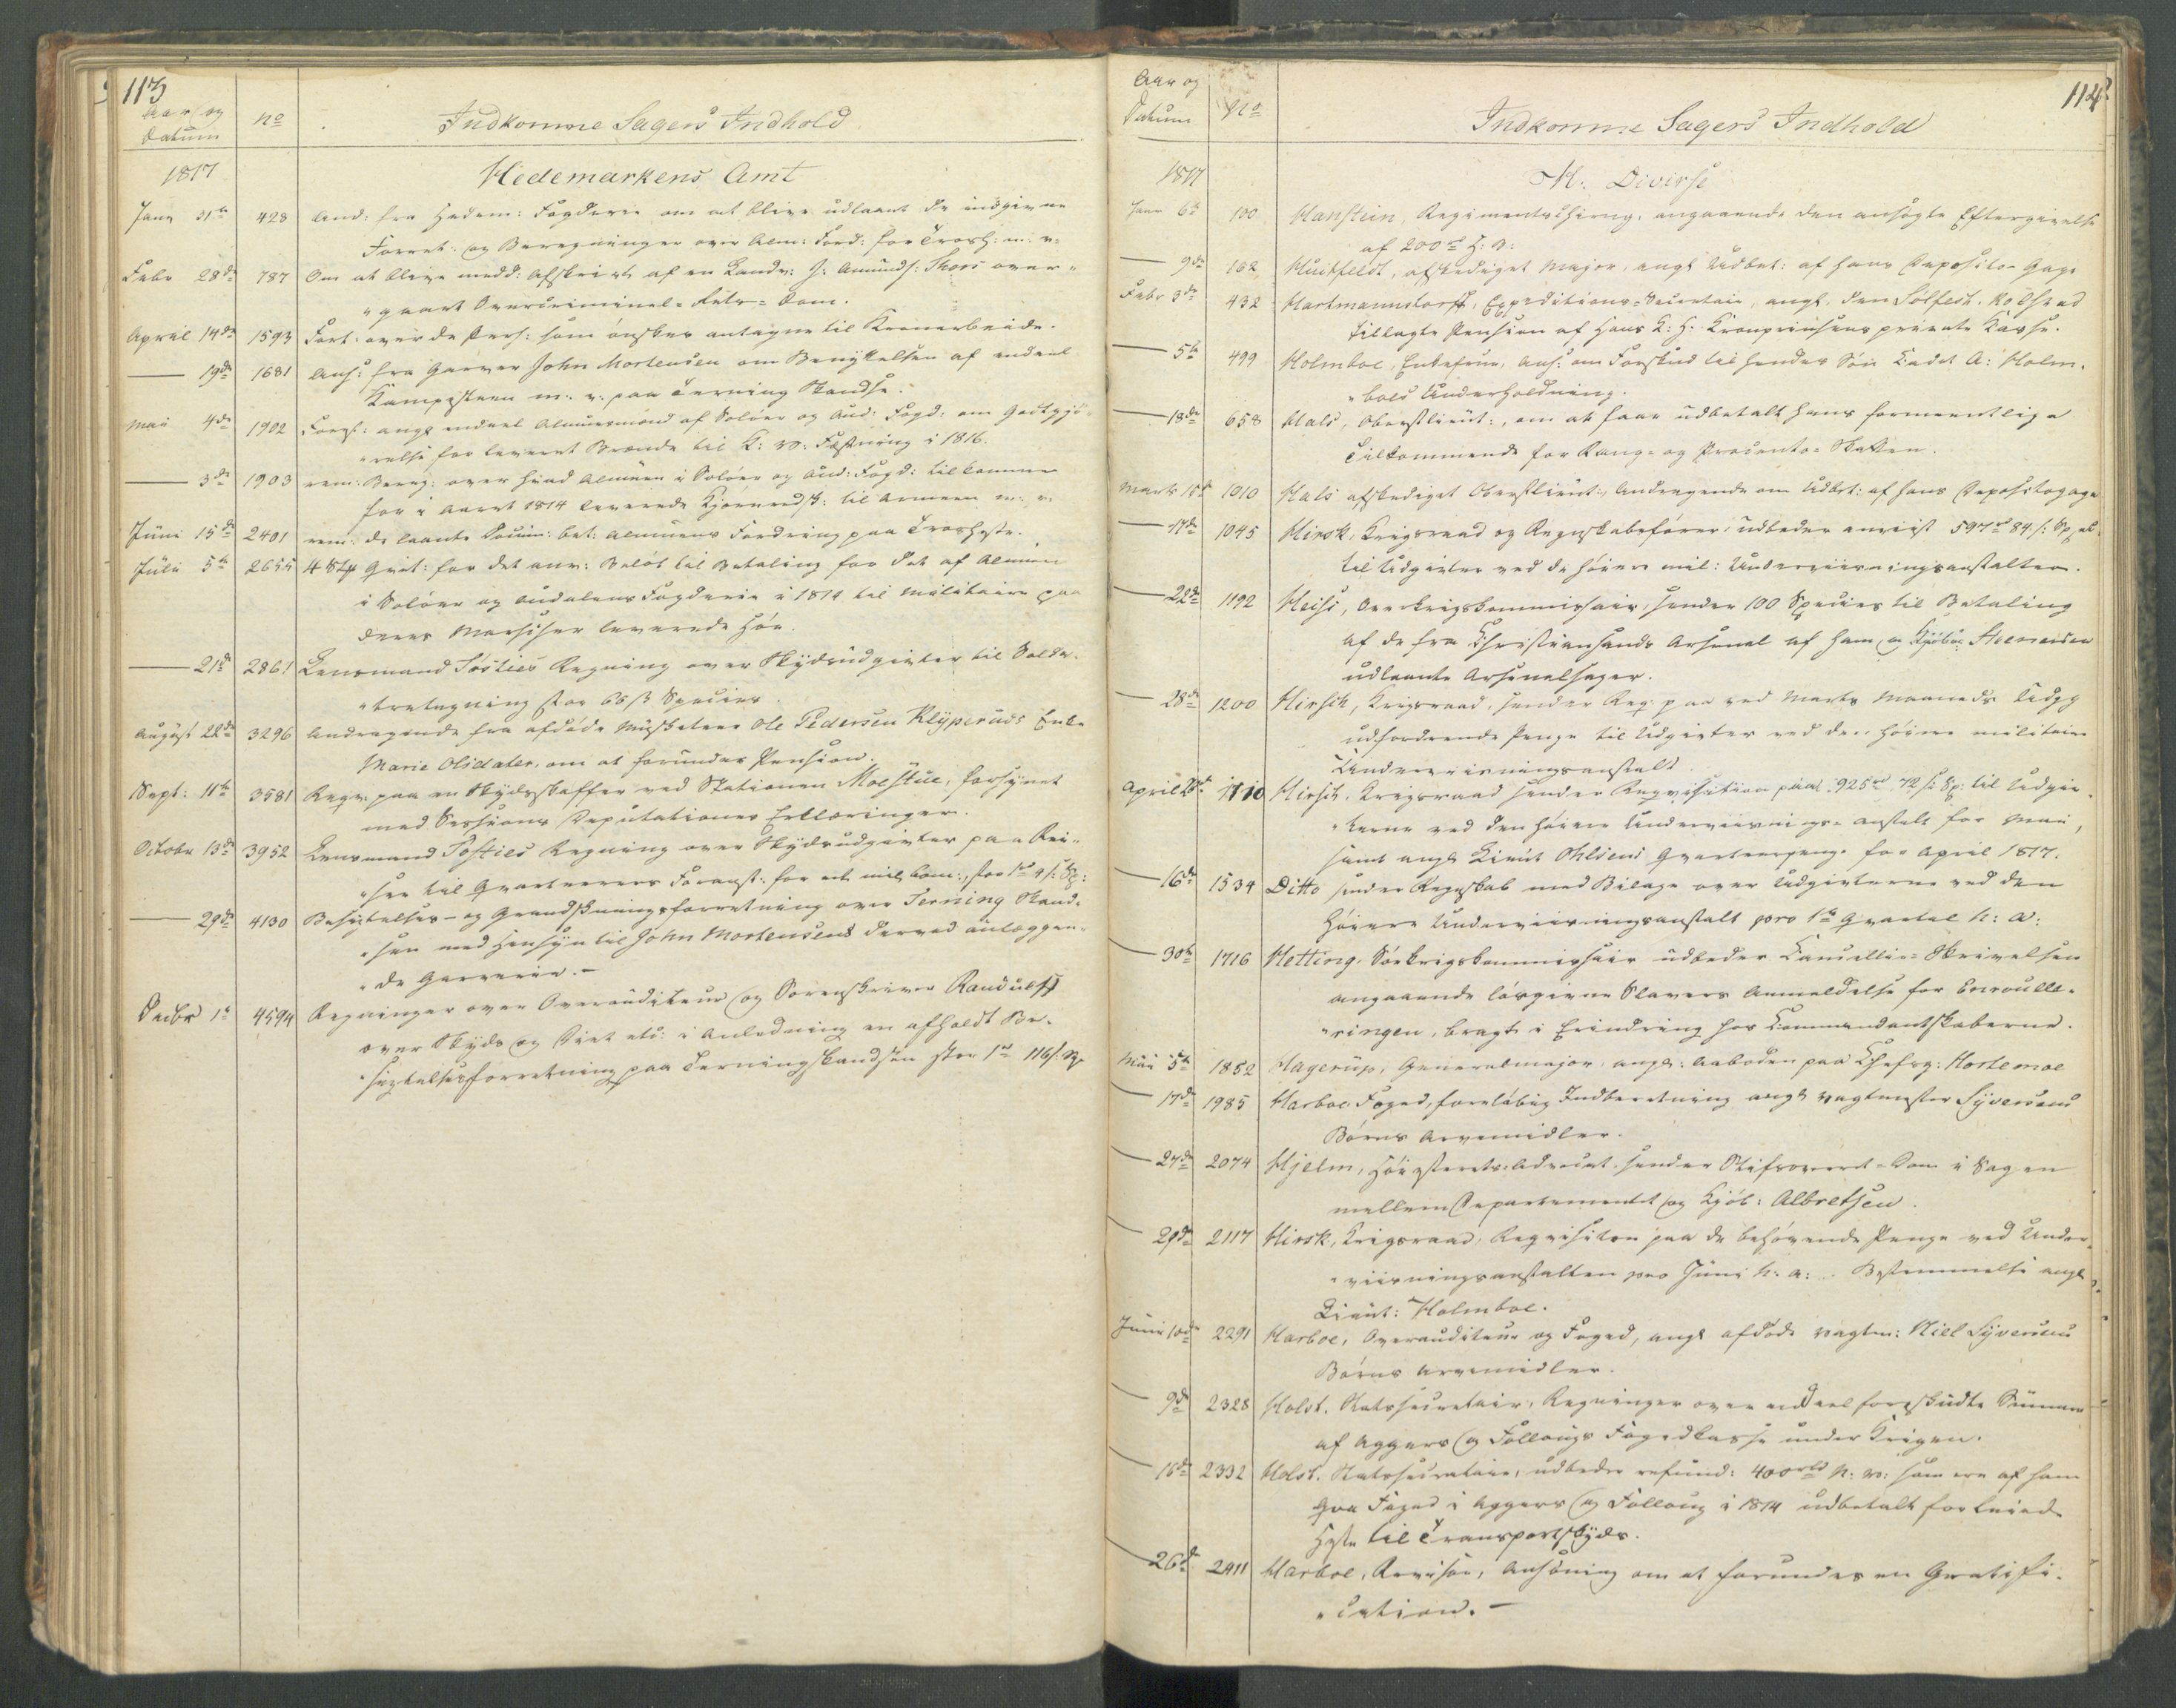 113
Aar og
Datum
No
Indkomne Sagers Indhold
1817
Hedemarkens Amt
Janr 21de 428 And: fra Hedem: Fogderie om at blive udlaant de indgivne
Forret: og Beregninger over Alm: Ford: for Trosh: m: v:
Febr 28de 787 Om at blive medd: Afskrivt af en Landv: J: Amunds: Thors over-
"gaaet Overcriminal-Rets-Dom.
April 14de 1593 Fort: over de Pers: som ønskes antagne til Kronarbeide.
19de 1681 Ans: fra Garver John Mortensen om Benyttelsen af endeel
Kampesteen m: v: paa Terning Skandse.
Mai 4de 1902 Foresp: angd endeel Almuesmænd af Solöer og Aud: Fogd: om Godtgjö-
"relse for leveret Brænde til K: W: Fæstning i 1816.
3de 1903 rem: Bereg: over hvad Almuen i Solöer og Aud: Fogd: tilkommer
for i Aaret 1814 leverede til Armeen m: v:
Juni 15de 2401 rem: de laante Docum: bet: Almuens Fordring paa Trosheste.
Juli 5te 2655 4 Stk Qvit: for det anv: Beløb til Betaling for det af Almuen
i Solöer og Oudalens Fogderie i 1814 til Militaire paa
deres Marscher leverede Höe.
21de 2861 Lensmand Tofties Regning over Skydsudgivter til Solda-
"tertagning stor 66 ß Species.
August 22de 3296 Andragende fra afdöde Musketeer Ole Pedersen Klyperuds Enke
Marie Olsdater, om at forundes Pension.
Sept: 11te 3581 Reqv: paa en Skydsskaffer ved Stationen Moestue, forsynet
med Sessions Deputationes Erklæringer.
October 13de 3952 Lensmand Tofties Regning over Skydsudgivter paa Rei-
"ser til Qvarterers Foranst: for mil: Com:, stor 1rd 4 s: Sp:
29de 4130 Besigtelses- og Grandskningsforretning over Terning Skand-
"sen med Hensyn til John Mortensens derved anlæggen-
"de Garverie.-
Decbr 1te 4594 Regninger over Overauditeur og Sorenskriver Randulff
over Skyds og Diet etc: i Anledning en afholdt Be-
"sigtelsesforretning paa Terningskandsen stor 1rd 116 s. Sp
Aar og
Datum
No
114
Indkomne Sagers Indhold
1817
H: Diverse
Janr 6te 100 Hanstein, Regimentschirug: angaaende den ansögte Eftergivelse
af 200rd H: N:
9de 162 Huitfeldt, afskediget Major, angd Udbet: af hans Deposito-Gage
Febr 3de 432 Hartmannsdorff, Expeditions-Secretair, angd. den Sölfest. Kolstad
tillagte Pension af Hans K: H: Kronprinsens private Kasse.
5te 499 Holmboe, Enkefrue, Ans: om Forskud til hendes Sön Cadet A: Holm-
"boes Underholdning.
18de 658 Hals, Oberstlieut:, om at faae udbetalt hans formeentlige
Tilkommende for Rang- og Procento-Skatten.
Marts 15de 1010 Hals afskediget Oberstlieut:, Andragende om Udbet: af hans Depositogage
17de 1045 Hirsk, Krigsraad og Regnskabsförer, udbeder anviist 597rd 84 s: Sp
til Udgivter ved de höiere mil: Underviisningsanstalter.
22de 1192 Heise, Overkrigskommissair, sender 100 Species til Betaling
af de fra Christiansands Arsenal af ham og Kjöbm: Steenersen
udlaante Arsenalsager.
28de 1200 Hirsch, Krigsraad, sender Req: paa ved Marts Maaneds Udgg
udfordrende Penge til Udgivter ved den höiere militaire
Underviisningsanstalt.
April 1710 Hirsch, Krigsraad sender Reqvisition paa 925rd 72 s: Sp: til Udgiv-
"terne ved den höiere Underviisnings-Anstalt for Mai,
samt angd Lieut Ohlsens Qvarteerpenge for April 1817.
16de 1534 Ditto sender Regnskab med Bilage over Udgivterne ved den
höiere Underviisningsanstalt pro 1te Qvartal h: a:
30te 1716 Hetting, Söekrigskommissair udbeder Cancellie-Skrivelsen
angaaende lösgivne Slavers Anmeldelse for Enroulle-
"ringen, bragt i Erindring hos Commandantskaberne.
Mai 5te 1852 Hagerup, Generalmajor, angd: Aaboden paa Chefsg: Hortemoe
17de 1985 Harboe, Foged, forelöbig Indberetning angd Vagtmester Syversens
Börns Arvemidler.
27de 2074 Hjelm, Höiesterets-Advocat, sender Stiftsoverret-Dom i Sagen
mellem Departementet og Kjöb: Albretsen.
29de 2117 Hirsk, Krigsraad, Reqvisition paa de behövende Penge ved Under-
"viisningsanstalten pro Juni h: a: Bestemmelse angd
Lieut: Holmboe.
Juni 10de 2291 Harboe, Overauditeur og Foged, angd afdöde Vagtm: Niel Syversens
Börns Arvemidler.
9de 2328 Holst, Statssecretair, Regninger over endeel forskudte Summer
af Aggers og Follougs Fogedkasse under Krigen.
16de 2332 Holst, Statssecretair, udbeder refund: 400rbd N: V: som ere af ham
qva Foged i Aggers og Follaug i 1814 udbetalt for leiede
Heste til Transportskyds.
26de 2411 Harboe, Revisor, Ansöning om at forundes en Gratifi-
"cation.-